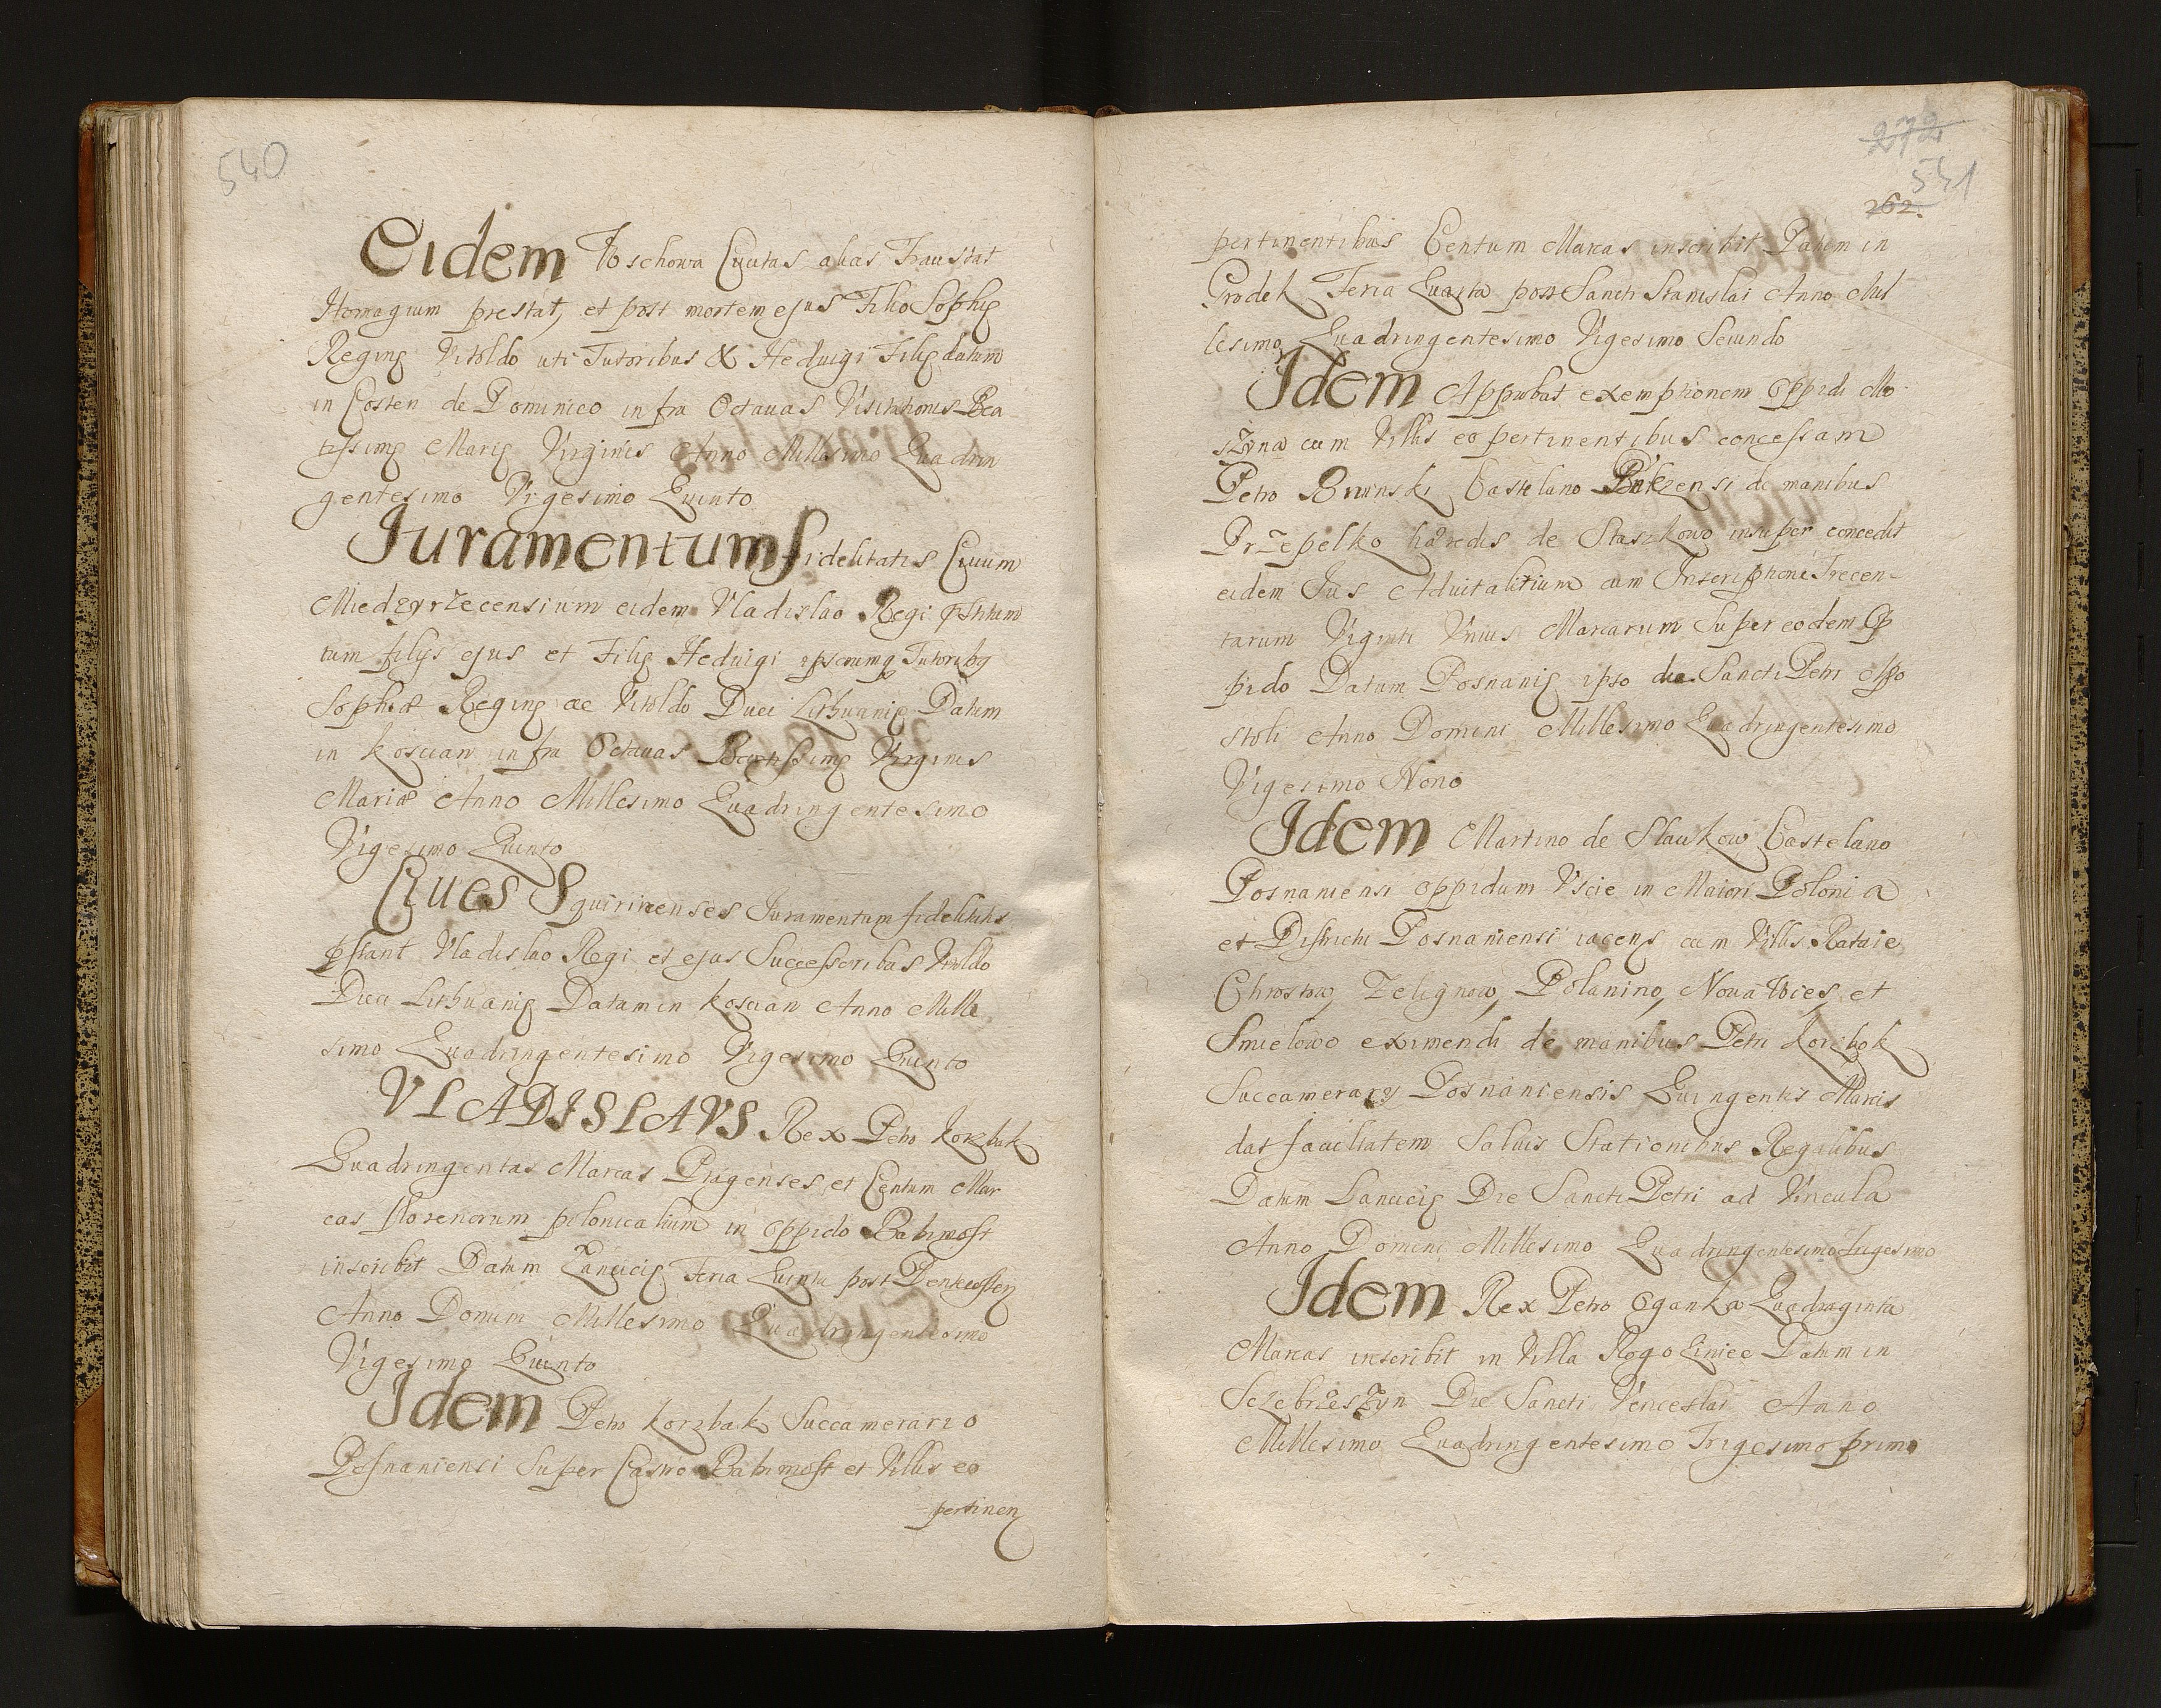 540
Eidem Wschowa Ciuitas alias Fraustat
Homagium prestat, et post mortem ejus Filio Sophię
Reginę Vitoldo uti Tutoribus & Heduigi Filię datum
in Costen de Dominico infra Octauas Visitationis Bea
tissimę Marię Virginis Anno Millesimo Quadrin
gentesimo Vigesimo Quinto
Juramentum fidelitatis Ciuium
Miedzyrzecensium eidem Vladislao Regi pstitum
tum filijs ejus et Filię Heduigi ipsorumq Tutoribq
Sophiæ Reginę ac Vitoldo Duci Lithuanię Datum
in Koscian infra Octauas Beatissimę Virginis
Mariæ Anno Millesimo Quadringentesimo
Vigesimo Quinto
Ciues Squirinenses Juramentum fidelitatis
pstant Vladislao Regi et ejus Successoribus Vitoldo
Duci Lithuanię Datum in Koscian Anno Mille
simo Quadringentesimo Vigesimo Quinto
VLADISLAVS Rex Petro Korzbak
Quadringentas Marcas Pragenses et Centum Mar
cas florenorum polonicalium in oppido Babimost
inscribit Datum Lancicię Feria Quinta post Penthecosten
Anno Domini Millesimo Quadringentesimo
Vigesimo Quinto
Idem Petro Korzbak Succamerario
Posnaniensi Super Castro Babimost et Villis eo
pertinen
272
541
262.
pertinentibus Centum Marcas inscribit Datum in
Grodek Feria Quarta post Sancti Stanislai Anno Mil
lesimo Quadringentesimo Vigesimo Secundo
Idem Approbat exemptionem oppidi Mo
szyna cum Villis eo pertinentibus concessam
Petro Bninski Castelano de manibus
Przepelko hæredis de Staszkowo insuper concedit
eidem Jus Aduitalitium cum Inscriptione Trecen-
tarum Viginti Vnius Marcarum Super eodem Op
pido Datum Posnanię ipso die Sancti Petri Apo
stoli Anno Domini Millesimo Quadringentesimo
Vigesimo Nono
Idem Martino de Slawkow Castelano
Posnaniensi oppidum Vscie in Maiori Polonia
et Districtu Posnaniensi iacens cum Villis Rataie
Chrostow, Zelignow, Polanino, Noua Wies, et
Smielowo eximendi de manibus Petri Korzbok
Succamerarij Posnaniensis Quingentis Marcis
dat facultatem Saluis Stationibus Regalibus
Datum Lancicię Die Sancti Petri ad Vincula
Anno Domini Millesimo Quadringentesimo Trigesimo
Idem Rex Petro Oganka Quadraginta
Marcas inscribit in Villa Rogoziniec Datum in
Sczebrzeszyn Die Sancti Venceslai Anno
Millesimo Quadringentesimo Trigesimo primo